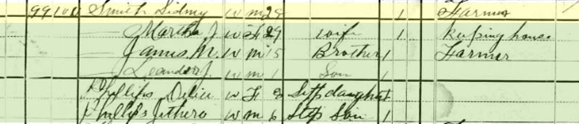 99 100 Smith Sidney W M 29 1 Farmer
Martha J W F 29 Wife 1 Keeping house
James M. W M 15 Brother 1 Farmer
Leander J W M 1 Son
Phillips Delia W F Step daughter
Phillips Jethero W M 6 Step Son 1